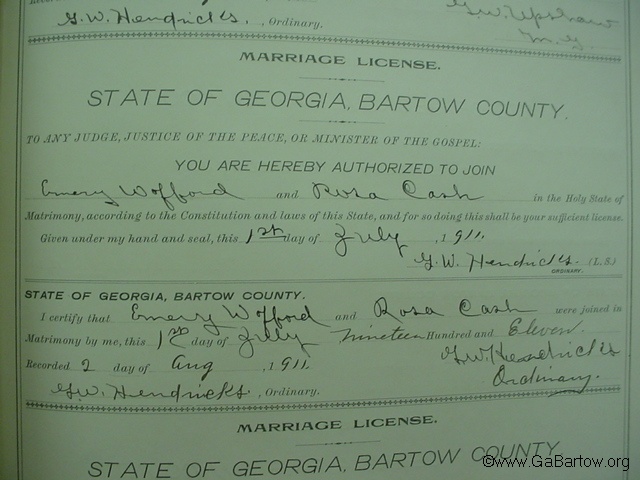 G.W. Hendricks, Ordinary.
G.W. Upshaw
M.G.
MARRIAGE LICENSE.
STATE OF GEORGIA, BARTOW COUNTY.
TO ANY JUDGE, JUSTICE OF THE PEACE, OR MINISTER OF THE GOSPEL:
YOU ARE HEREBY AUTHORIZED TO JOIN
Emery Wofford and Rosa Cash in the Holy State of
Matrimony, according to the Constitution and laws of this State, and for so doing this shall be your sufficient license.
Given under my hand and seal, this 1st day of July, 1911.
G.W. Hendricks. (L.S.)
ORDINARY.
STATE OF GEORGIA, BARTOW COUNTY.
I certify that Emery Wofford and Rosa Cash were joined in
Matrimony by me, this 1st day of July nineteen Hundred and Eleven
Recorded 2 day of Aug, 1911
G.W. Hendricks
Ordinary.
G.W. Hendricks, Ordinary.
MARRIAGE LICENSE.
STATE OF GEORGIA, BARTOW COUNTY.
©www.GaBartow.org